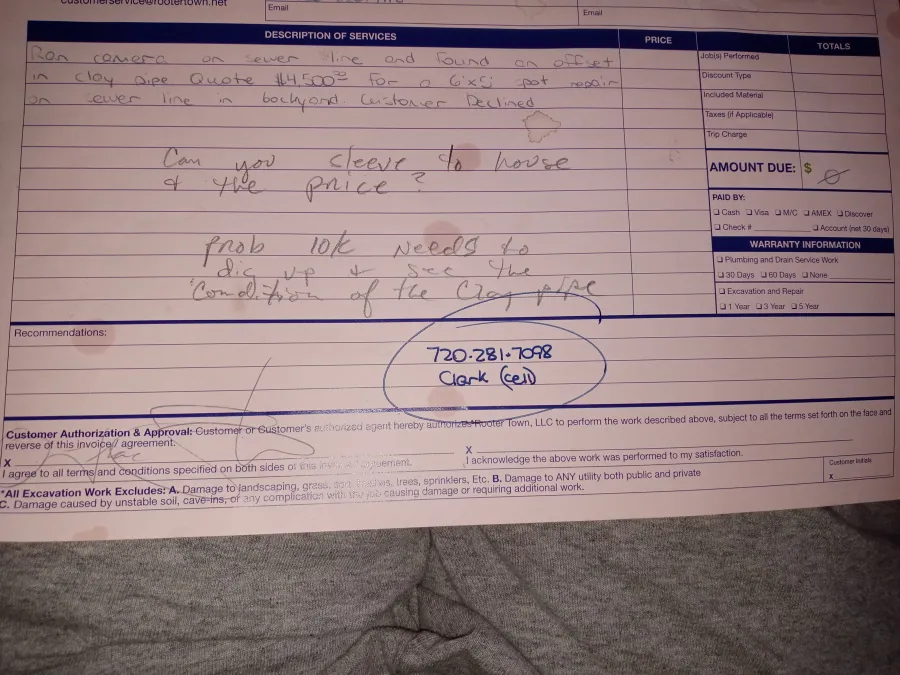 customerservice@rootertown.net
Email
Email
DESCRIPTION OF SERVICES
PRICE
TOTALS
Ran camera on sewer line and found an offset
in clay pipe Quote $4,500.00 For a 6'x5' spot repair
on sewer line in backyard. Customer Declined
Job(s) Performed
Discount Type
Included Material
Taxes (if Applicable)
Trip Charge
Can you sleeve to house
& the price?
AMOUNT DUE: $ 0
PAID BY:
❑ Cash ❑ Visa ❑ M/C ❑ AMEX ❑ Discover
❑ Check # ❑ Account (net 30 days)
Prob 10k Needs to
dig up + see the
Condition of the Clay pipe
WARRANTY INFORMATION
❑ Plumbing and Drain Service Work
❑ 30 Days ❑ 60 Days ❑ None
❑ Excavation and Repair
❑ 1 Year ❑ 3 Year ❑ 5 Year
Recommendations:
720-281-7098
Clark (cell)
Customer Authorization & Approval: Customer or Customer's authorized agent hereby authorizes Rooter Town, LLC to perform the work described above, subject to all the terms set forth on the face and
reverse of this invoice/agreement.
X
I agree to all terms and conditions specified on both sides of this agreement.
X
I acknowledge the above work was performed to my satisfaction.
Customer Initials
X
*All Excavation Work Excludes: A. Damage to landscaping, grass, trees, sprinklers, Etc. B. Damage to ANY utility both public and private
C. Damage caused by unstable soil, cave-ins, or any complication with the job causing damage or requiring additional work.